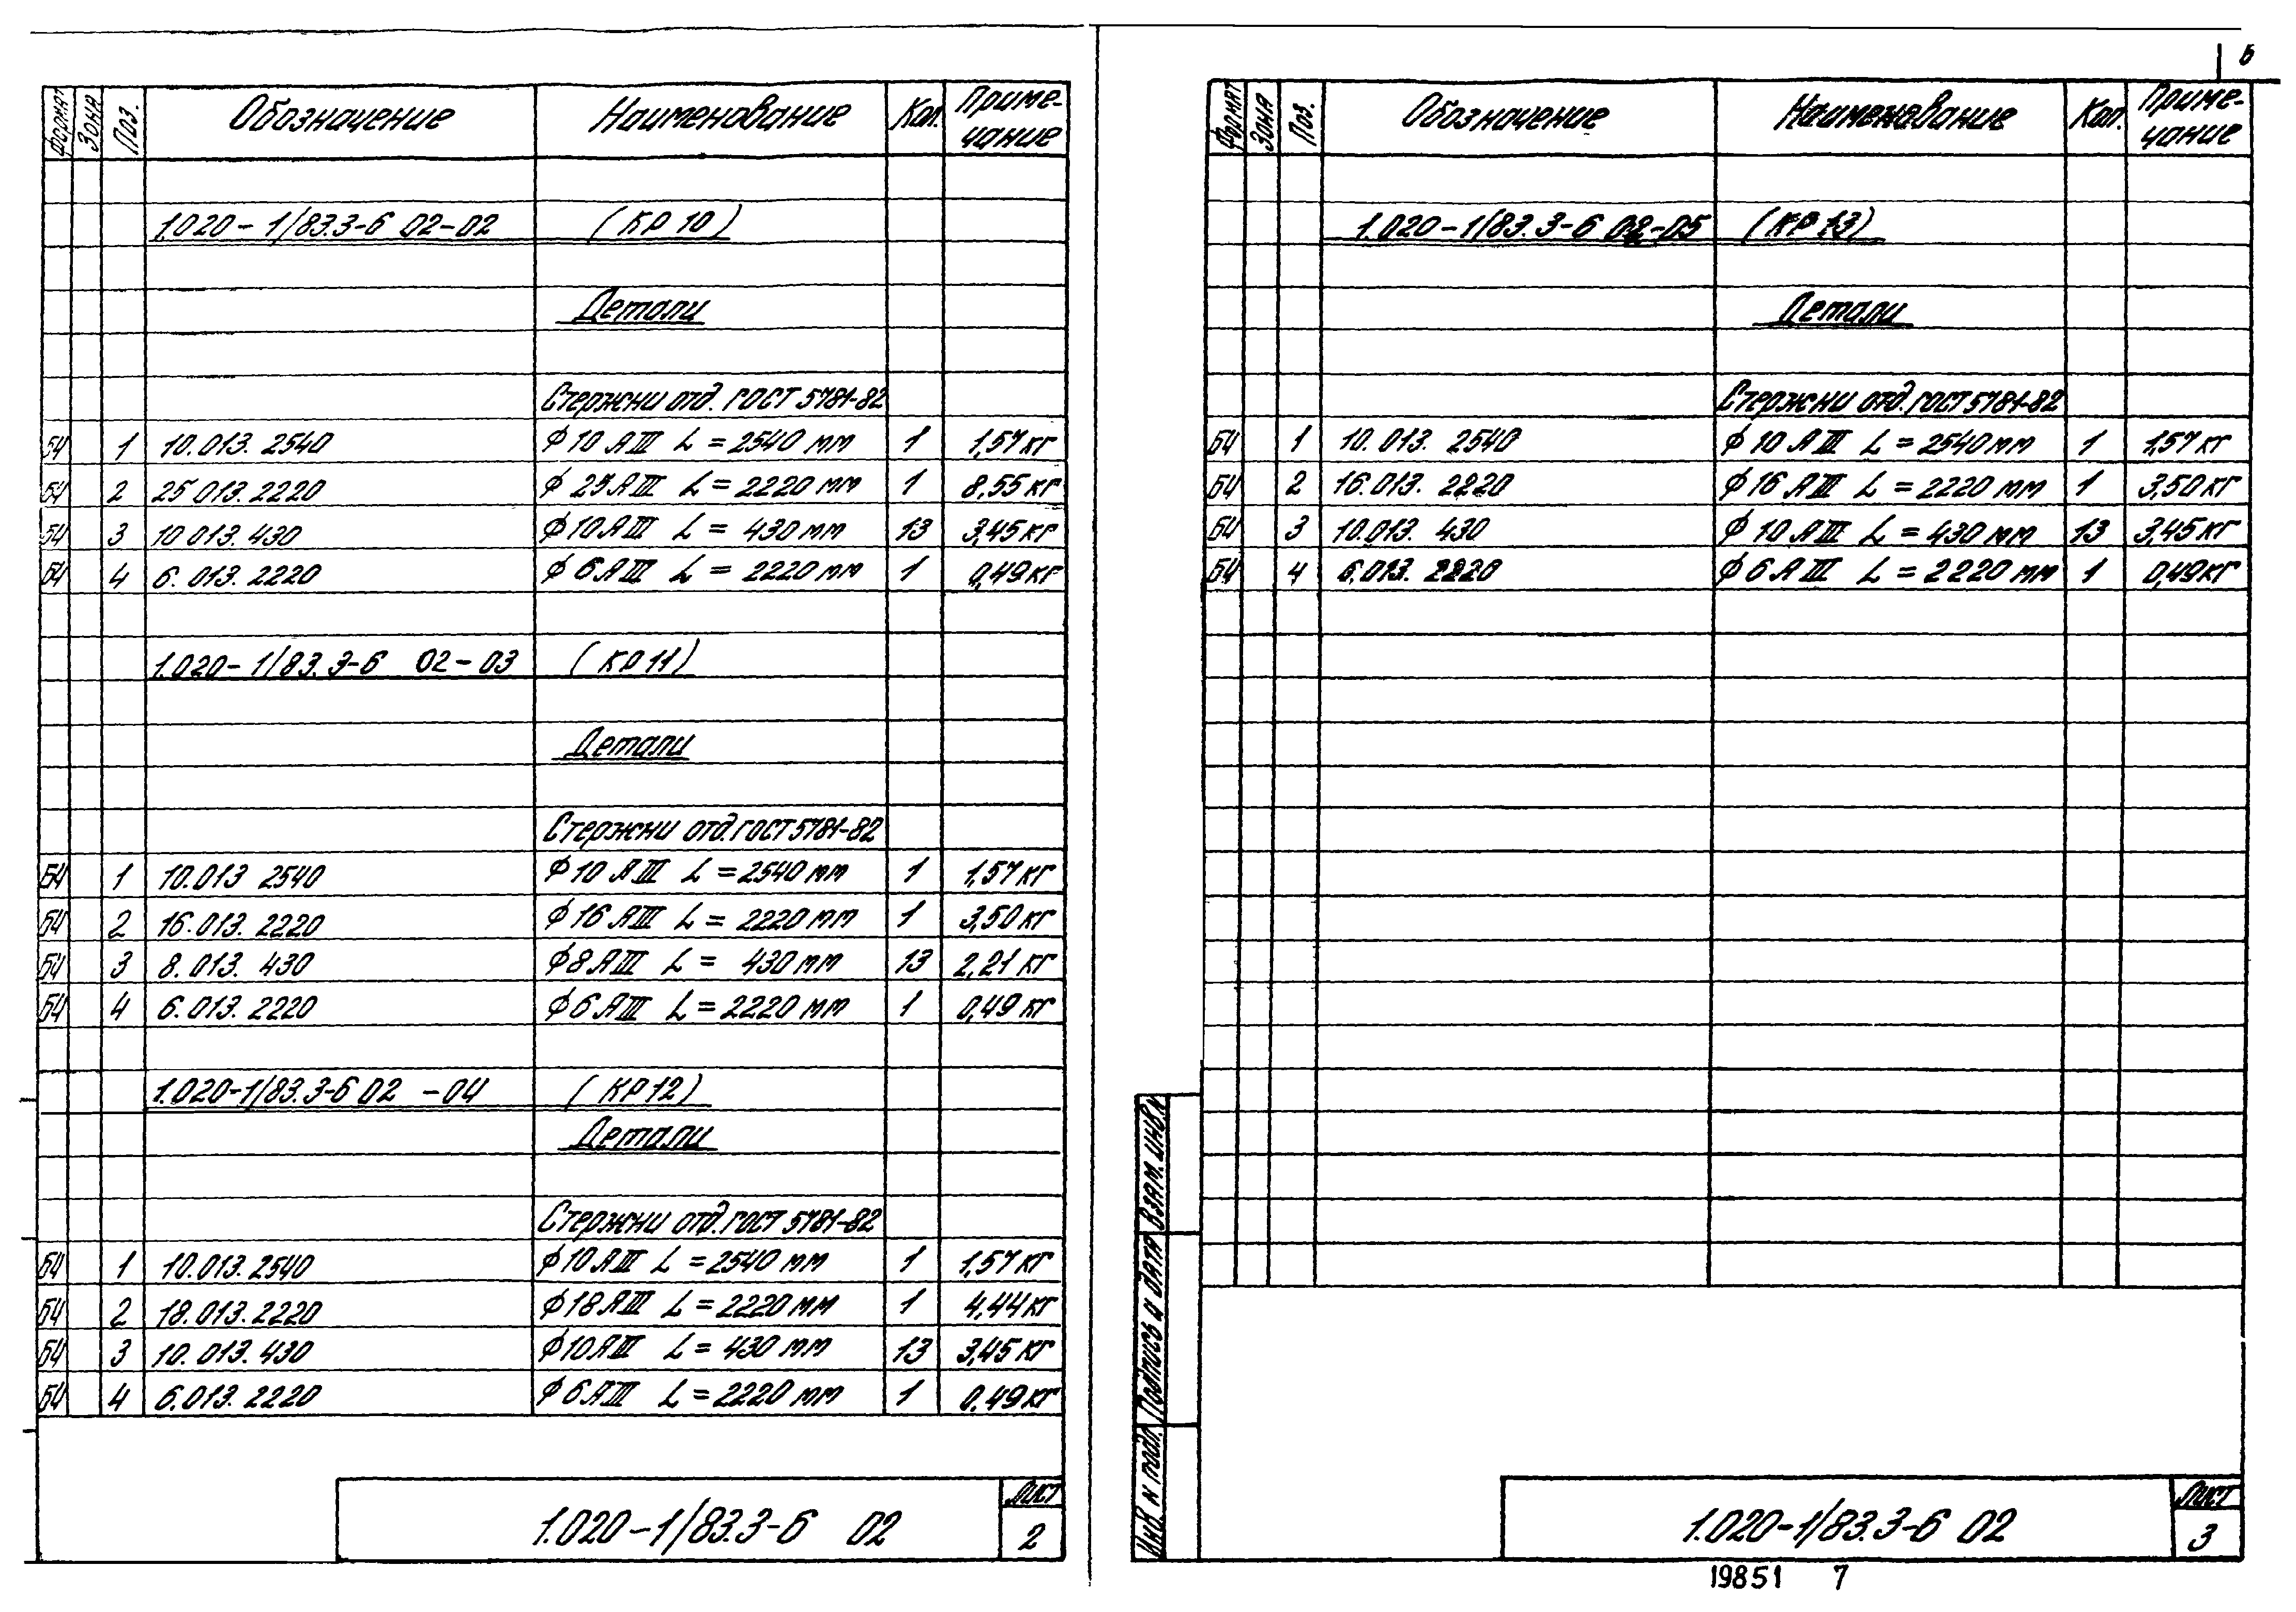 Формат Зона Поз. Обозначение Наименование Кол. Приме-
чание
1.020-1/83.3-6 02-02 (КР10)
Детали
Стержни отд. ГОСТ 5781-82
БЧ 1 10.013.2540 Ф10 АIII L=2540 мм 1 1,57 кг
БЧ 2 25 013.2220 Ф25АIII L=2220 мм 1 8,55 кг
БЧ 3 10 013.430 Ф10АIII L= 430 мм 13 3,45 кг
БЧ 4 6.013.2220 Ф6АIII L=2220 мм 1 0,49 кг
1.020-1/83.3-6 02-03 (КР11)
Детали
Стержни отд. ГОСТ 5781-82
БЧ 1 10.013 2540 Ф10 АIII L=2540 мм 1 1,57 кг
БЧ 2 16.013.2220 Ф16 АIII L=2220 мм 1 3,50 кг
БЧ 3 8.013. 430 Ф8АIII L= 430 мм 13 2,21 кг
БЧ 4 6.013.2220 Ф6АIII L=2220 мм 1 0,49 кг
1.020-1/83.3-6 02 -04 (КР12)
Детали
Стержни отд. ГОСТ 5781-82
БЧ 1 10.013.2540 Ф10АIII L=2540 мм 1 1,57 кг
БЧ 2 18.013.2220 Ф18АIII L=2220 мм 1 4,44 кг
БЧ 3 10.013.430 Ф10АIII L=430 мм 13 3,45 кг
БЧ 4 6.013.2220 Ф6АIII L=2220 мм 1 0.49 кг
1.020-1/83.3-6 02
Лист
2
6
Формат Зона Поз. Обозначение Наименование Кол. Приме-
чание
1.020-1/83.3-6 02-05 (КР13)
Детали
Стержни отд. ГОСТ 5781-82
БЧ 1 10.013. 2540 Ф10 АIII L=2540 мм 1 1,57 кг
БЧ 2 16.013. 2220 Ф16 АIII L=2220 мм 1 3,50 кг
БЧ 3 10.013. 430 Ф10 АIII L=430 мм 13 3,45 кг
БЧ 4 6.013. 2220 Ф6 АIII L=2220 мм 1 0,49 кг
Взам. инв. N
Подпись и дата
Инв N подл.
1.020-1/83.3-6 02
Лист
3
19851 7